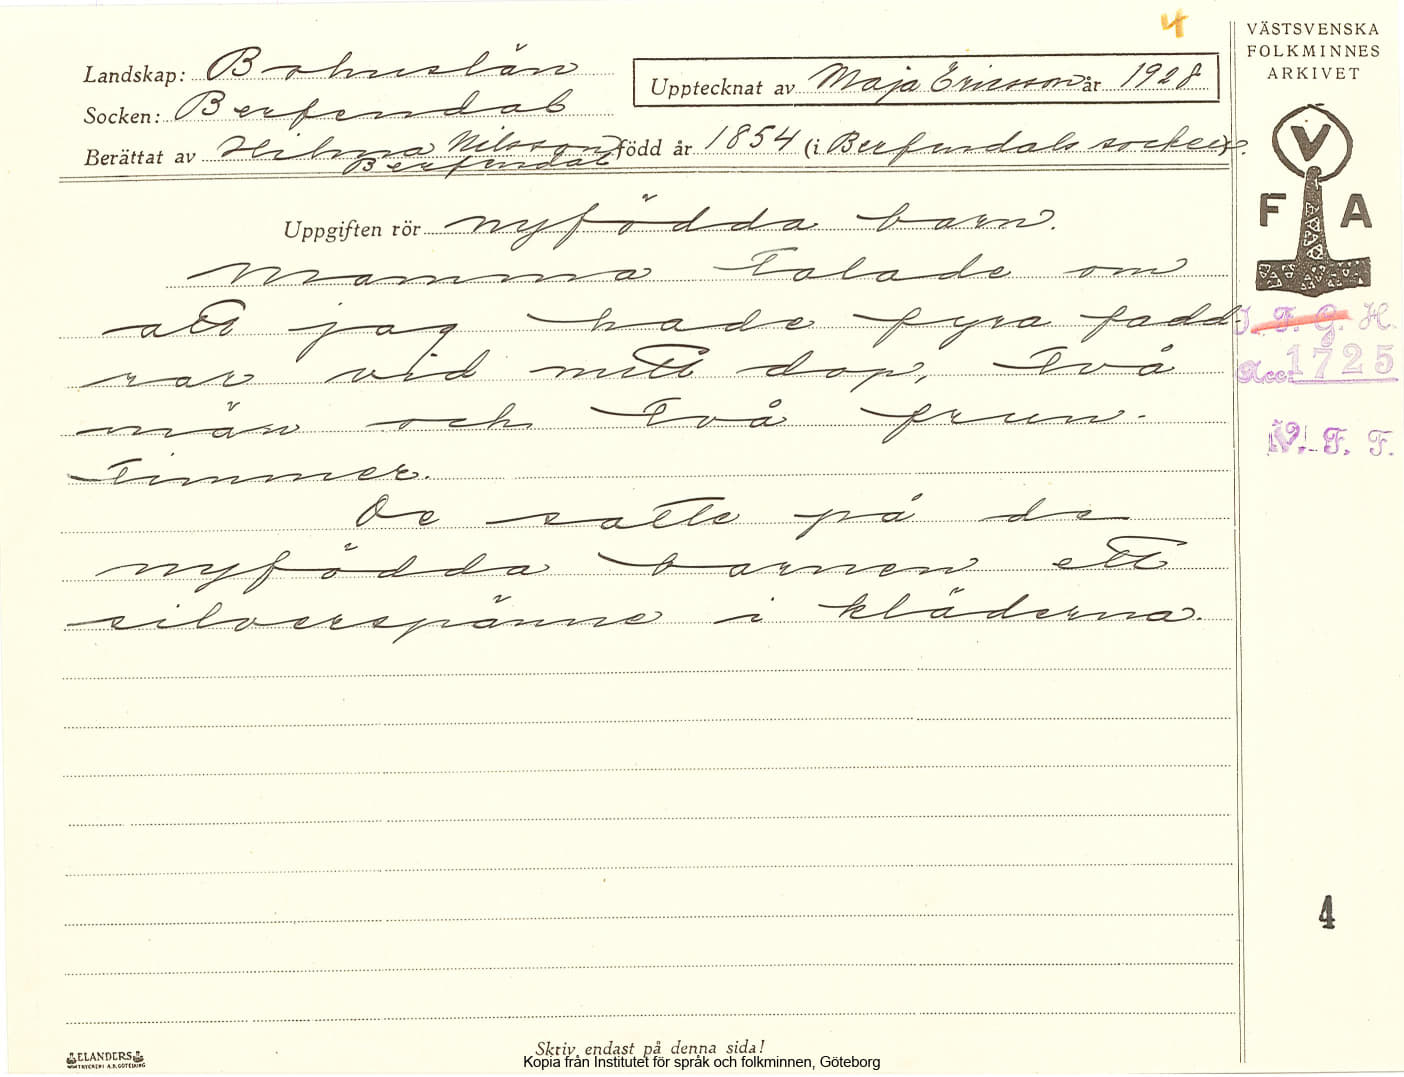 4
VÄSTSVENSKA
FOLKMINNES
ARKIVET
Landskap: Bohuslän
Upptecknat av Maja Ericsson år 1928
Socken: Berfendal
Berättat av Hilma Nilsson född år 1854 (i Berfendals socken).
Berfendal
V
F A
Uppgiften rör nyfödda barn.
Mamma talade om
att jag hade fyra fadd-
rar vid mitt dop, två
män och två frun-
timmer.
De satte på de
nyfödda barnen ett
silverspänne i kläderna.
I. F. G. H.
Acc. 1725
V. F. F.
4
ELANDERS
TRYCKERI A.B. GÖTEBORG
Skriv endast på denna sida!
Kopia från Institutet för språk och folkminnen, Göteborg